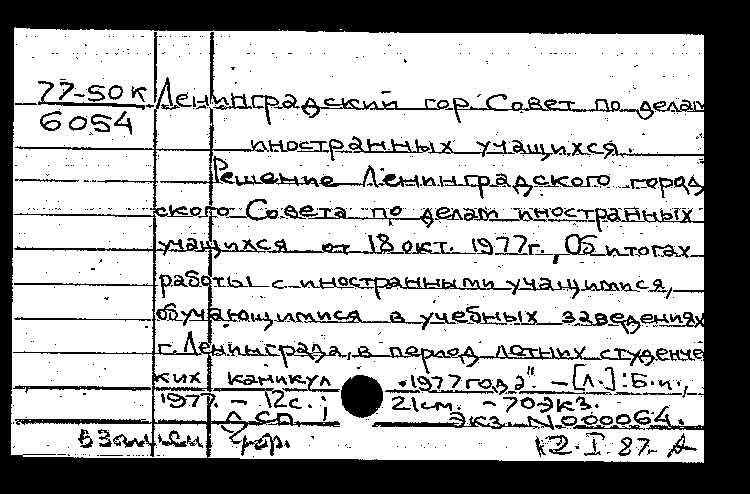 77-50к Ленинградский гор. Совет по делам
6054
иностранных учащихся.
Решение Ленинградского город
ского Совета по делам иностранных
учащихся от 18 окт. 1977г. „Об итогах
работы с иностранными учащимися,
обучающимися в учебных заведениях
г. Ленинграда, в период летних студенче
ких каникул 1977 года". – [Л.]: Б.и.,
1977. – 12с.; 21см. – 70экз.
ДСП. Экз. N000064.
взамен 12.I.87.